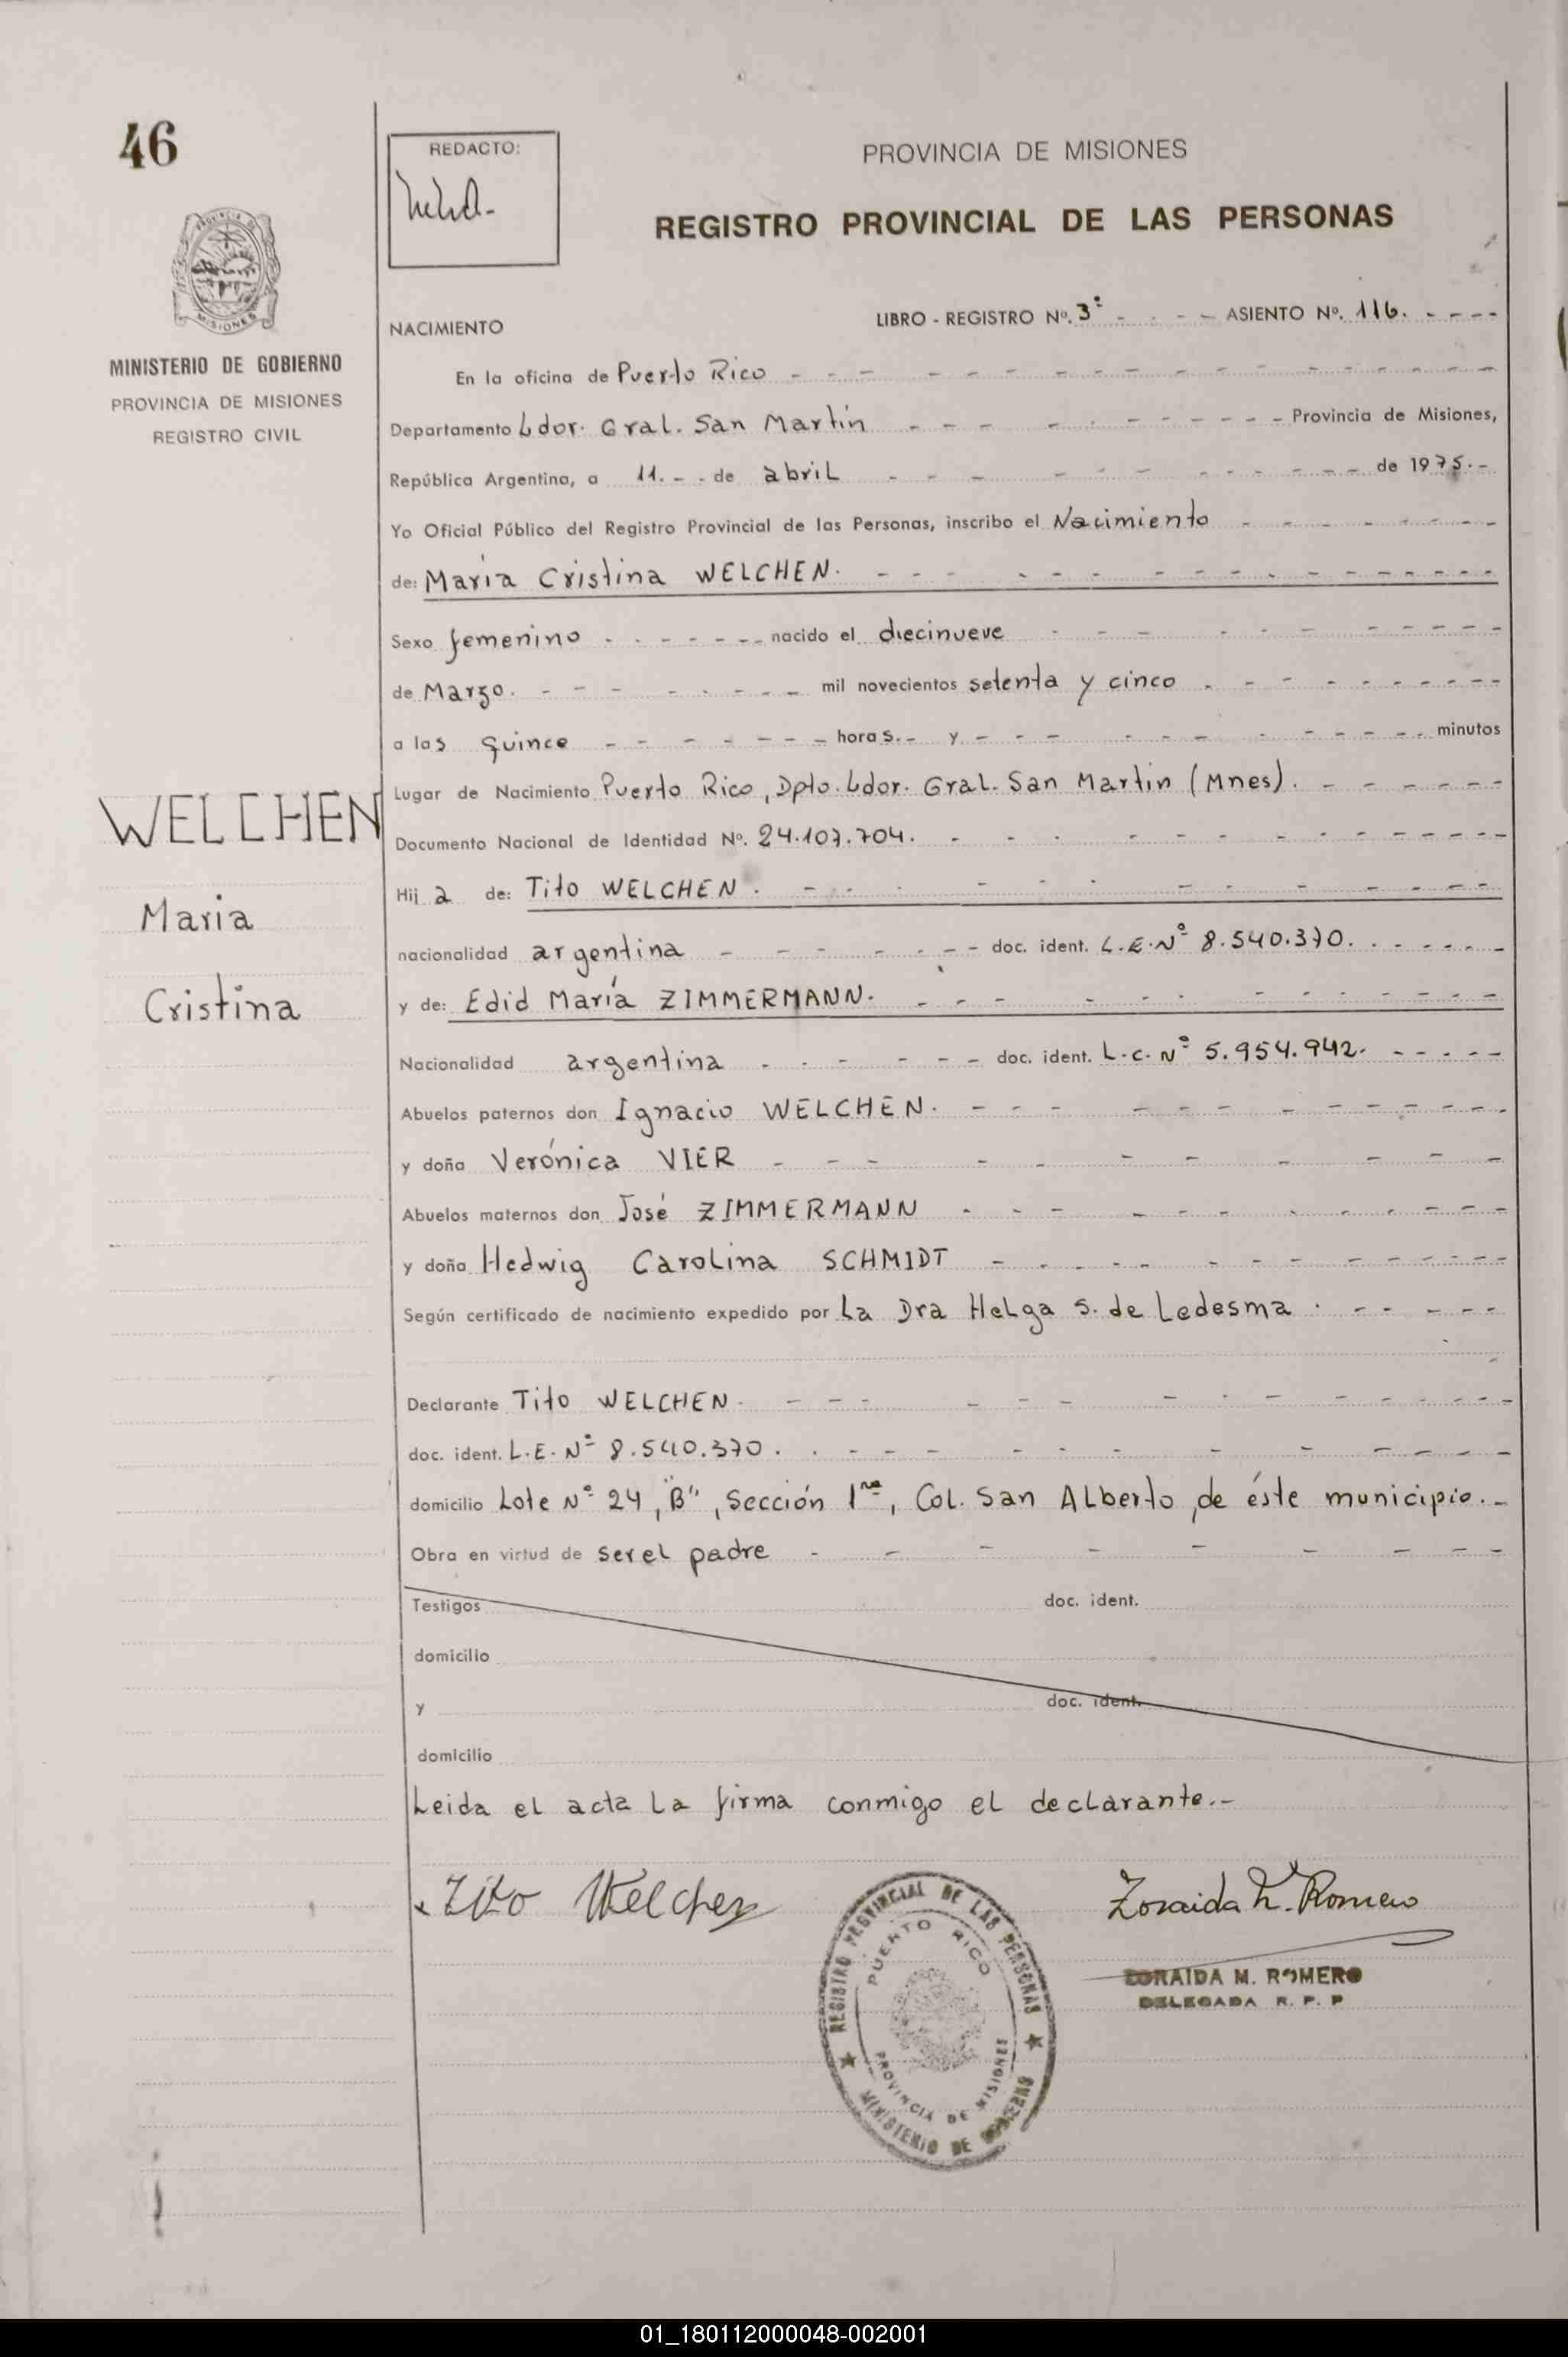 46
REDACTO:
PROVINCIA DE MISIONES
REGISTRO PROVINCIAL DE LAS PERSONAS
MISIONES
MINISTERIO DE GOBIERNO
PROVINCIA DE MISIONES
REGISTRO CIVIL
NACIMIENTO
LIBRO - REGISTRO Nº. 3º - - - - ASIENTO Nº. 116. - - - -
En la oficina de Puerto Rico
Departamento Ldor. Gral. San Martín - - - Provincia de Misiones,
República Argentina, a 11. - - de abril - - - de 1975.-
Yo Oficial Público del Registro Provincial de las Personas, inscribo el Nacimiento
de: María Cristina WELCHEN.
Sexo femenino - - - nacido el diecinueve
de Marzo. - - - mil novecientos setenta y cinco
a las quince - - - horas.- y - - - minutos
Lugar de Nacimiento Puerto Rico, Dpto. Ldor. Gral. San Martín (Mnes).
Documento Nacional de Identidad Nº. 24.107.704.
Hija de: Tito WELCHEN.
nacionalidad argentina - - - doc. ident. L.E.Nº 8.540.370.
y de: Edid María ZIMMERMANN.
Nacionalidad argentina - - - doc. ident. L.C. Nº 5.954.942.
Abuelos paternos don Ignacio WELCHEN.
y doña Verónica VIER
Abuelos maternos don José ZIMMERMANN
y doña Hedwig Carolina SCHMIDT
Según certificado de nacimiento expedido por La Dra Helga S. de Ledesma.
Declarante Tito WELCHEN.
doc. ident. L.E. Nº 8.540.370.
domicilio Lote Nº 24, "B", Sección 1ra, Col. San Alberto, de éste municipio.-
Obra en virtud de ser el padre
Testigos doc. ident.
domicilio
y doc. ident.
domicilio
Leida el acta La firma conmigo el declarante.-
WELCHEN
Maria
Cristina
Tito Welchen
Zoraida M. Romero
REGISTRO PROVINCIAL DE LAS PERSONAS
PUERTO RICO
PROVINCIA DE MISIONES
MINISTERIO DE GOBIERNO
ZORAIDA M. ROMERO
DELEGADA R. P. P
01_180112000048-002001